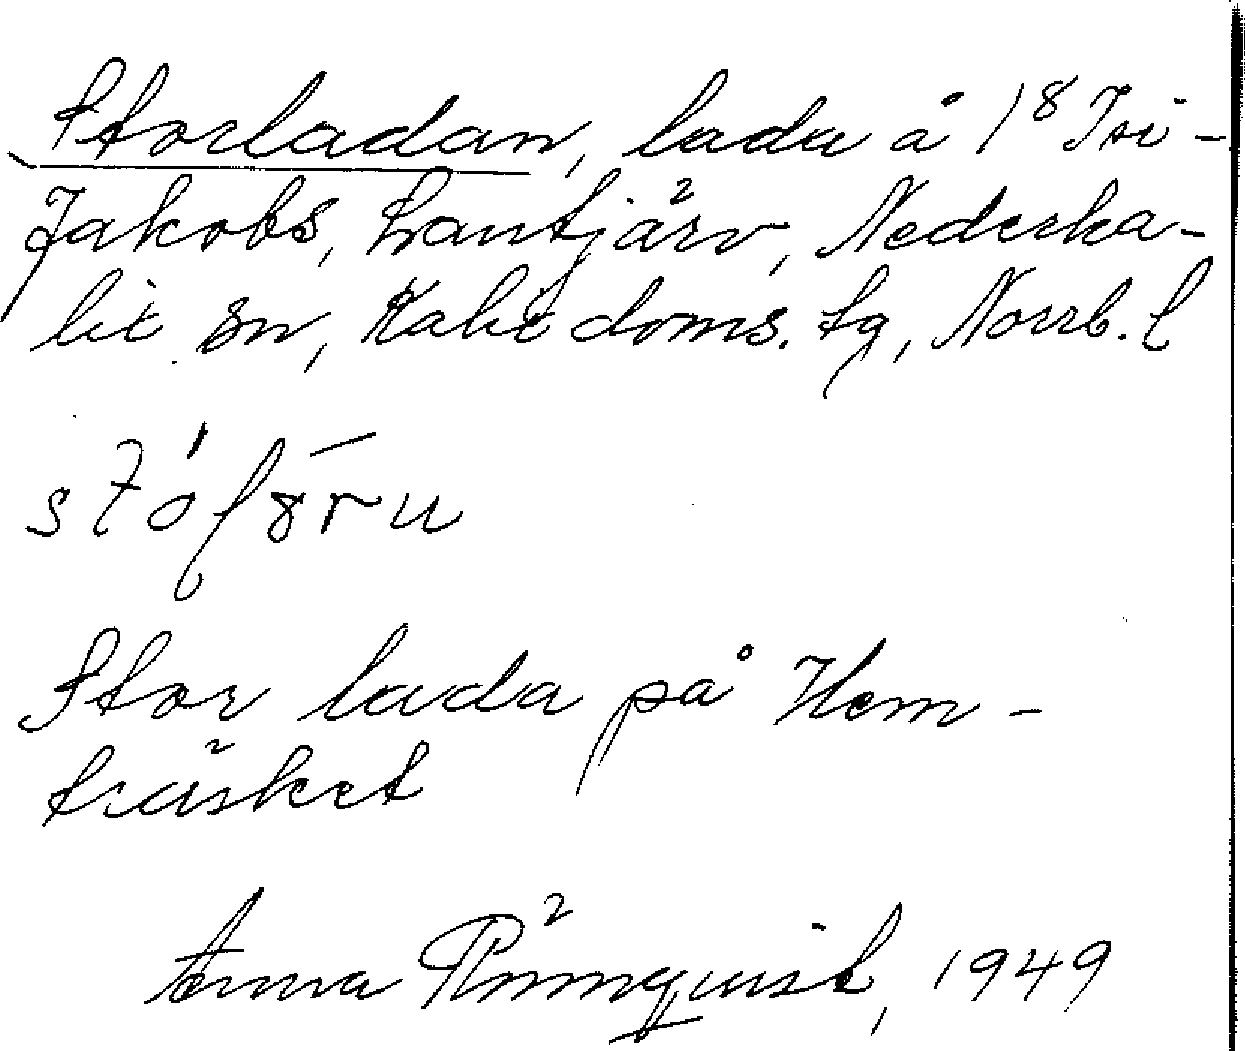 Storladan, lada å 1⁸ Isi-
Jakobs, Lantjärv, Nederka-
lix sn, Kalix doms. tg, Norrb. l
stófōru
Stor lada på Hem-
träsket
Anna Rönnquist, 1949